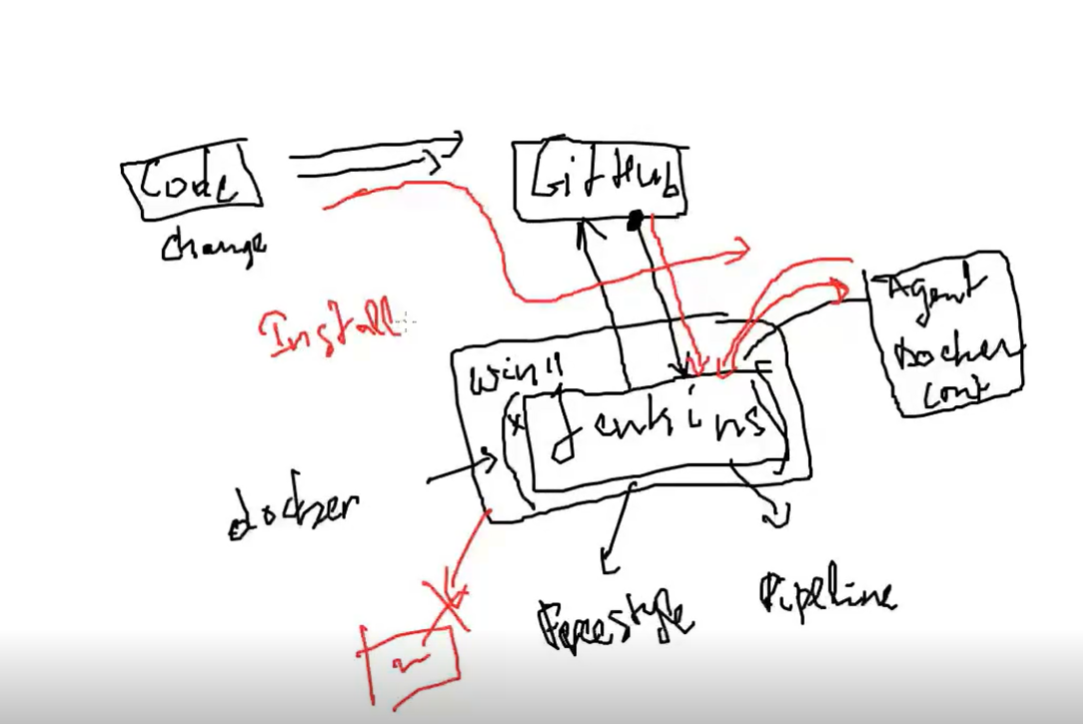 Code
change
GitHub
Install
Agent
Docker
Cont
Win 11
Jenkins
docker
Freestyle
Pipeline